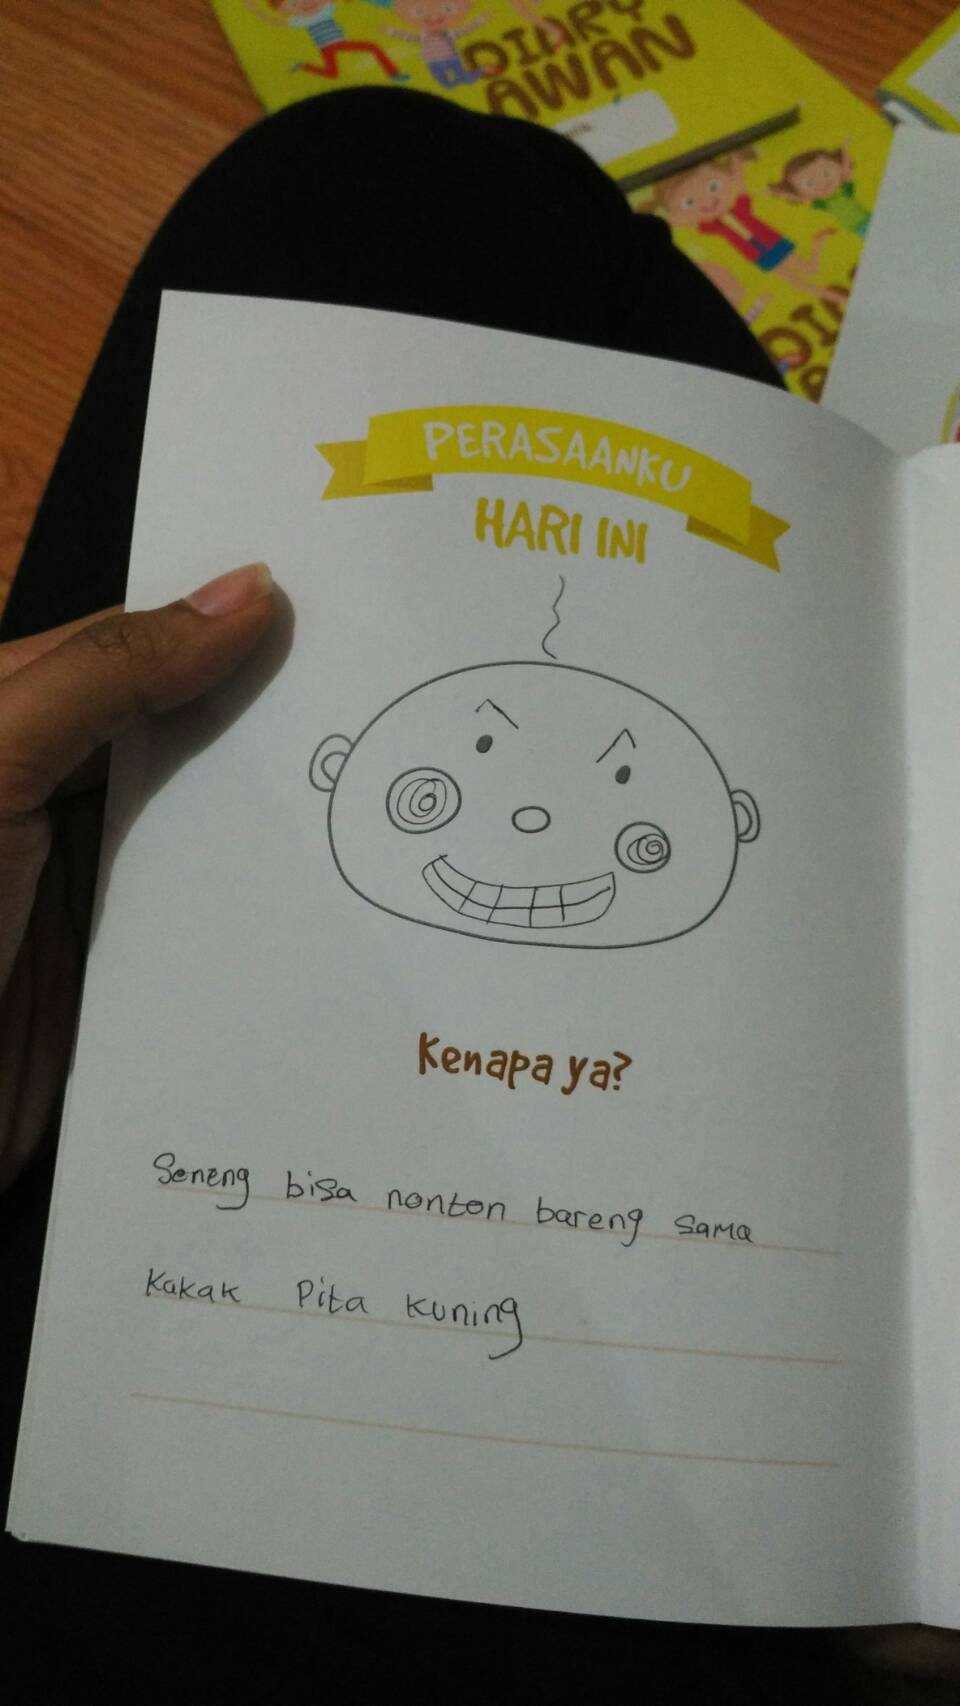 DIARY
AWAN
PERASAANKU
HARI INI
Kenapa ya?
Seneng bisa nonton bareng sama
Kakak Pita Kuning